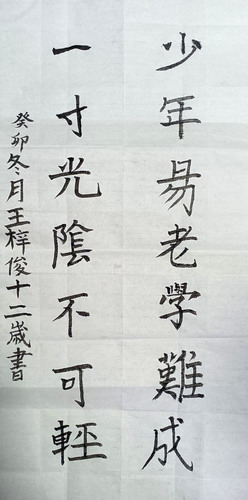 少年易老學難成
一寸光陰不可輕
癸卯冬月王梓俊十二歲書